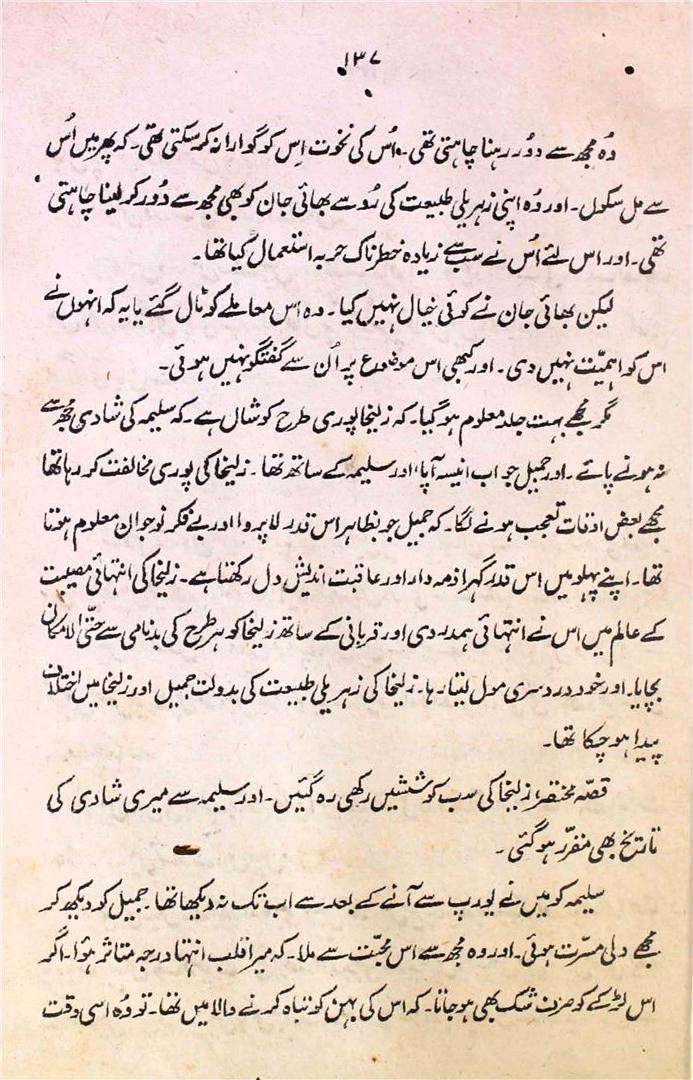 ۱۳۷
وہ مجھ سے دور رہنا چاہتی تھی۔ اُس کی نخوت اِس کو گوارا نہ کر سکتی تھی۔ کہ پھر میں اُس
سے مل سکوں۔ اور وُہ اپنی زہریلی طبیعت کی رُو سے بھائی جان کو بھی مجھ سے دُور کر لینا چاہتی
تھی۔ اور اس لئے اُس نے سب سے زیادہ خطرناک حربہ استعمال کیا تھا۔
لیکن بھائی جان نے کوئی خیال نہیں کیا۔ وہ اس معاملے کو ٹال گئے یا یہ کہ انہوں نے
اس کو اہمیّت نہیں دی۔ اور کبھی اس موضوع پر اُن سے گفتگو نہیں ہوئی۔
مگر مجھے بہت جلد معلوم ہو گیا۔ کہ زلیخا پوری طرح کوشاں ہے۔ کہ سلیمہ کی شادی مجھ سے
نہ ہونے پائے۔ اور جمیل جو اب انیسہ آپا، اور سلیمہ کے ساتھ تھا۔ زلیخا کی پوری مخالفت کر رہا تھا
مجھے بعض اوقات تعجب ہونے لگا۔ کہ جمیل جو بظاہر اس قدر لاپروا اور بے فکر نوجوان معلوم ہوتا
تھا۔ اپنے پہلو میں اس قدر گہرا ذمہ دار اور عاقبت اندیش دل رکھتا ہے۔ زلیخا کی انتہائی مصیبت
کے عالم میں اس نے انتہائی ہمدردی اور قربانی کے ساتھ زلیخا کو ہر طرح کی بدنامی سے حتّی الامکان
بچایا۔ اور خود دردسری مول لیتا رہا۔ زلیخا کی زہریلی طبیعت کی بدولت جمیل اور زلیخا میں اختلاف
پیدا ہو چکا تھا۔
قصّہ مختصر، زلیخا کی سب کوششیں رکھی رہ گئیں۔ اور سلیمہ سے میری شادی کی
تاریخ بھی مقرّر ہو گئی۔
سلیمہ کو میں نے یورپ سے آنے کے بعد سے اب تک نہ دیکھا تھا۔ جمیل کو دیکھ کر
مجھے دلی مسرّت ہوئی۔ اور وہ مجھ سے اس محبّت سے ملا۔ کہ میرا قلب انتہا درجہ متاثر ہوا۔ اگر
اس لڑکے کو صرف شک بھی ہو جاتا۔ کہ اس کی بہن کو تباہ کرنے والا میں تھا۔ تو وُہ اسی وقت